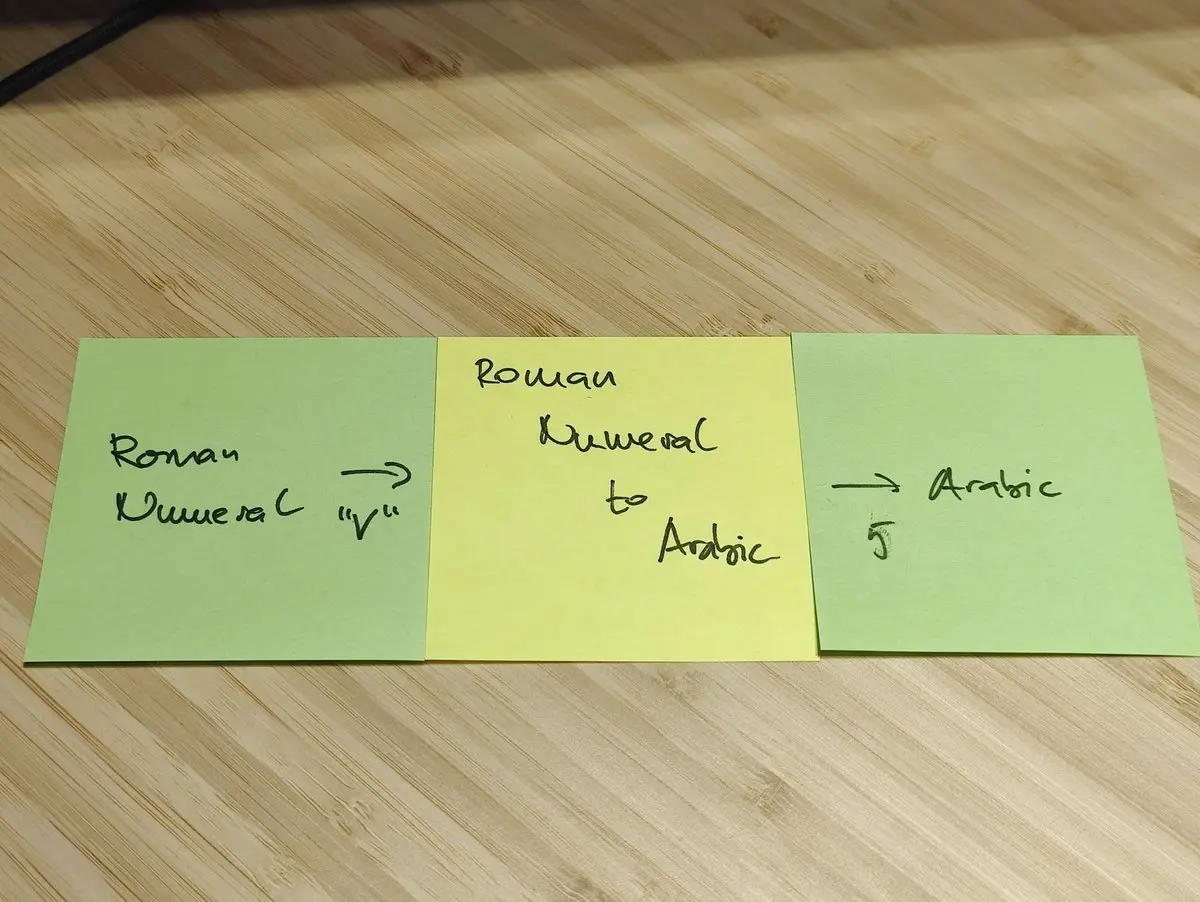 Roman
Numeral →
"V"
Roman
Numeral
to
Arabic
→ Arabic
5